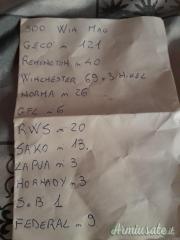 300 WIN MAG
GECO n 121
REMINGTON n 40
WINCHESTER 69 + 3 NIKEL
NORMA n 26
GFL n 6
RWS n 20
SAKO n 13.
LAPUA n 3
HORNADY n 3
S&B 1
FEDERAL n 9
Armiusate.it